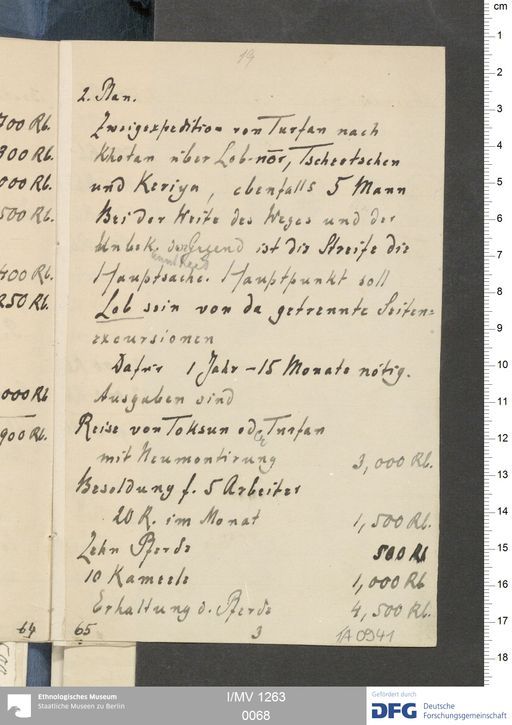 19
2. Plan.
Zweigexpedition von Turfan nach
Khotan über Lob-nōr, Tschertschen
und Keriya, ebenfalls 5 Mann
Bei der Weite des Weges und der
Unbek. der Gegend ist die Streife die
Hauptsache. Hauptpunkt soll
Lob sein von da getrennte Seiten=
excursionen
Dafür 1 Jahr – 15 Monate nötig.
Ausgaben sind
Reise von Toksun oder Turfan
mit Neumontirung 3,000 Rb.
Besoldung f. 5 Arbeiter
20 R. im Monat 1,500 Rb.
Zehn Pferde 500 Rb
10 Kameele 1,000 Rb
Erhaltung d. Pferde 4,500 Rb.
700 Rb.
300 Rb.
000 Rb.
500 Rb.
400 Rb.
250 Rb.
000 Rb
900 Rb.
64
65
3
IA 0941
cm
1
2
3
4
5
6
7
8
9
10
11
12
13
14
15
16
17
18
Ethnologisches Museum
Staatliche Museen zu Berlin
I/MV 1263
0068
Gefördert durch
DFG Deutsche
Forschungsgemeinschaft